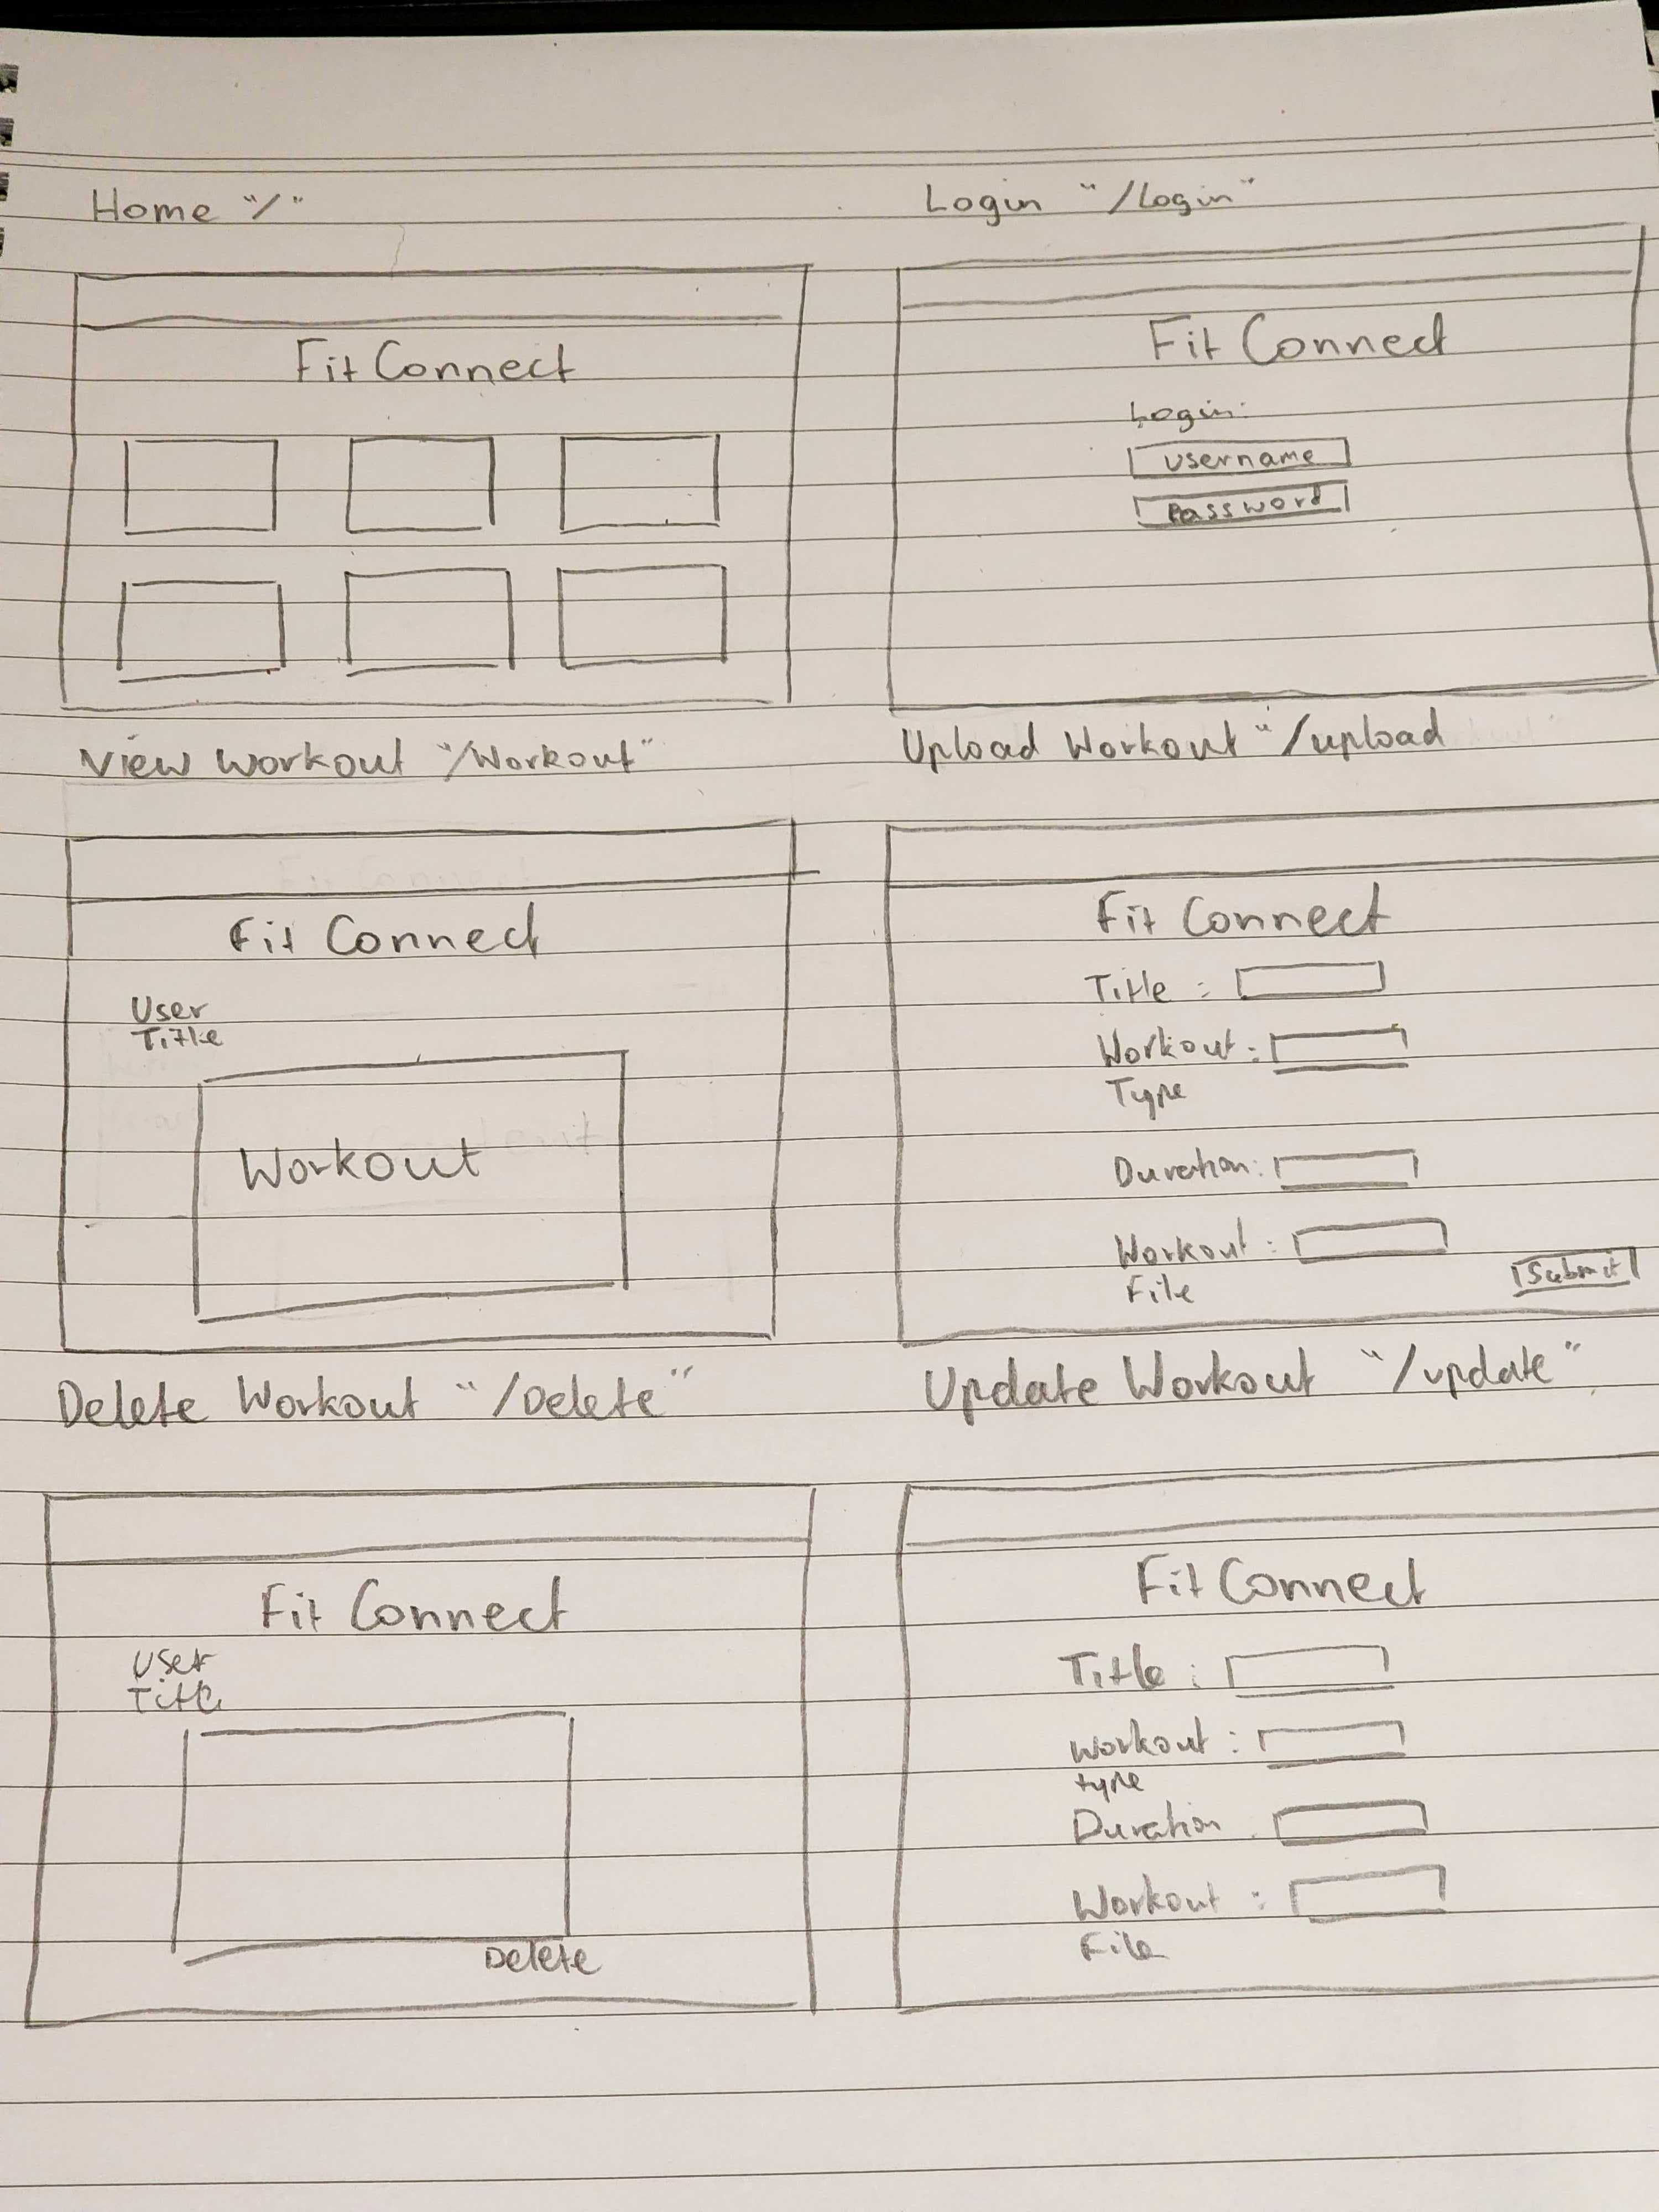 Home "/"
Fit Connect
Login "/login"
Fit Connect
Login:
username
Password
View Workout "/Workout"
Fit Connect
User
Title
Workout
Upload Workout "/upload
Fit Connect
Title :
Workout :
Type
Duration:
Workout :
File
Submit
Delete Workout "/Delete"
Fit Connect
User
Title
Delete
Update Workout "/update"
Fit Connect
Title :
Workout :
type
Duration
Workout :
File